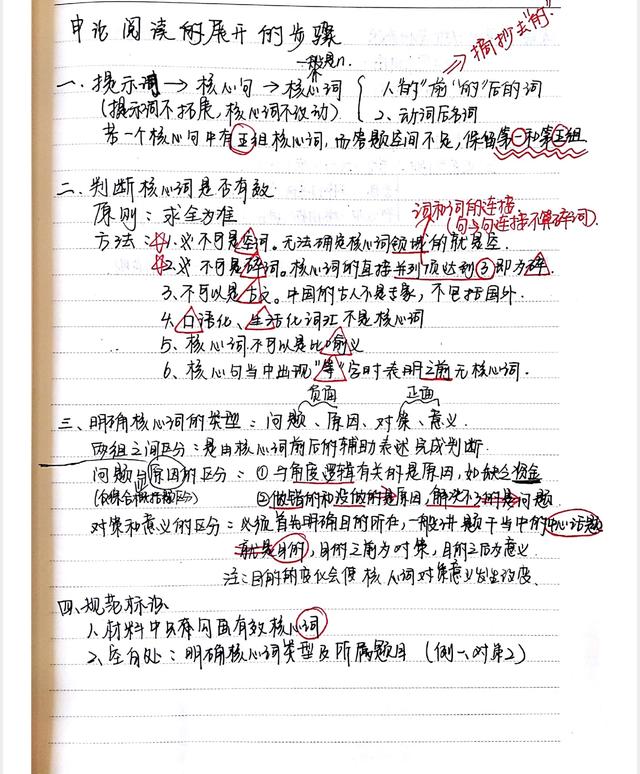 申论阅读的展开的步骤
一般是n.
⇒摘抄去"的"
一、提示词→核心句→核心词 { 1、"的"前"的"后的词
(提示词不拓展,核心词不改动) 2、动词后名词
若一个核心句中有五组核心词,而答题空间不足,保留第一和第五组
二、判断核心词是否有效
原则:求全为准
词和词的连接
(句与句连接不算碎词)
方法:1.必不可是空词。无法确定核心词领域的就是空.
2.必不可是碎词。核心词的直接并列项达到③即为碎
3、不可以是古文。中国的古人不是专家,不包括国外.
4、口语化、生活化词汇不是核心词
5、核心词不可以是比喻义
6、核心句当中出现"等"字时表明之前无核心词.
负面 正面
三、明确核心词的类型:问题、原因、对策、意义
两组之间区分:是由核心词前后的辅助表述完成判断
问题与原因的区分:①与角度逻辑有关的是原因,如缺乏资金
②做错的和没做的是原因,解决不了的是问题
对策和意义的区分:必须首先明确目的所在,一般讲题干当中的中心话题
就是目的,目的之前为对策,目的之后为意义
注:目的的变化会使核心词对策意义发生改变.
四、规范标识
1、材料中只需勾画有效核心词
2、空白处:明确核心词类型及所属题目 (例:一、对策2)